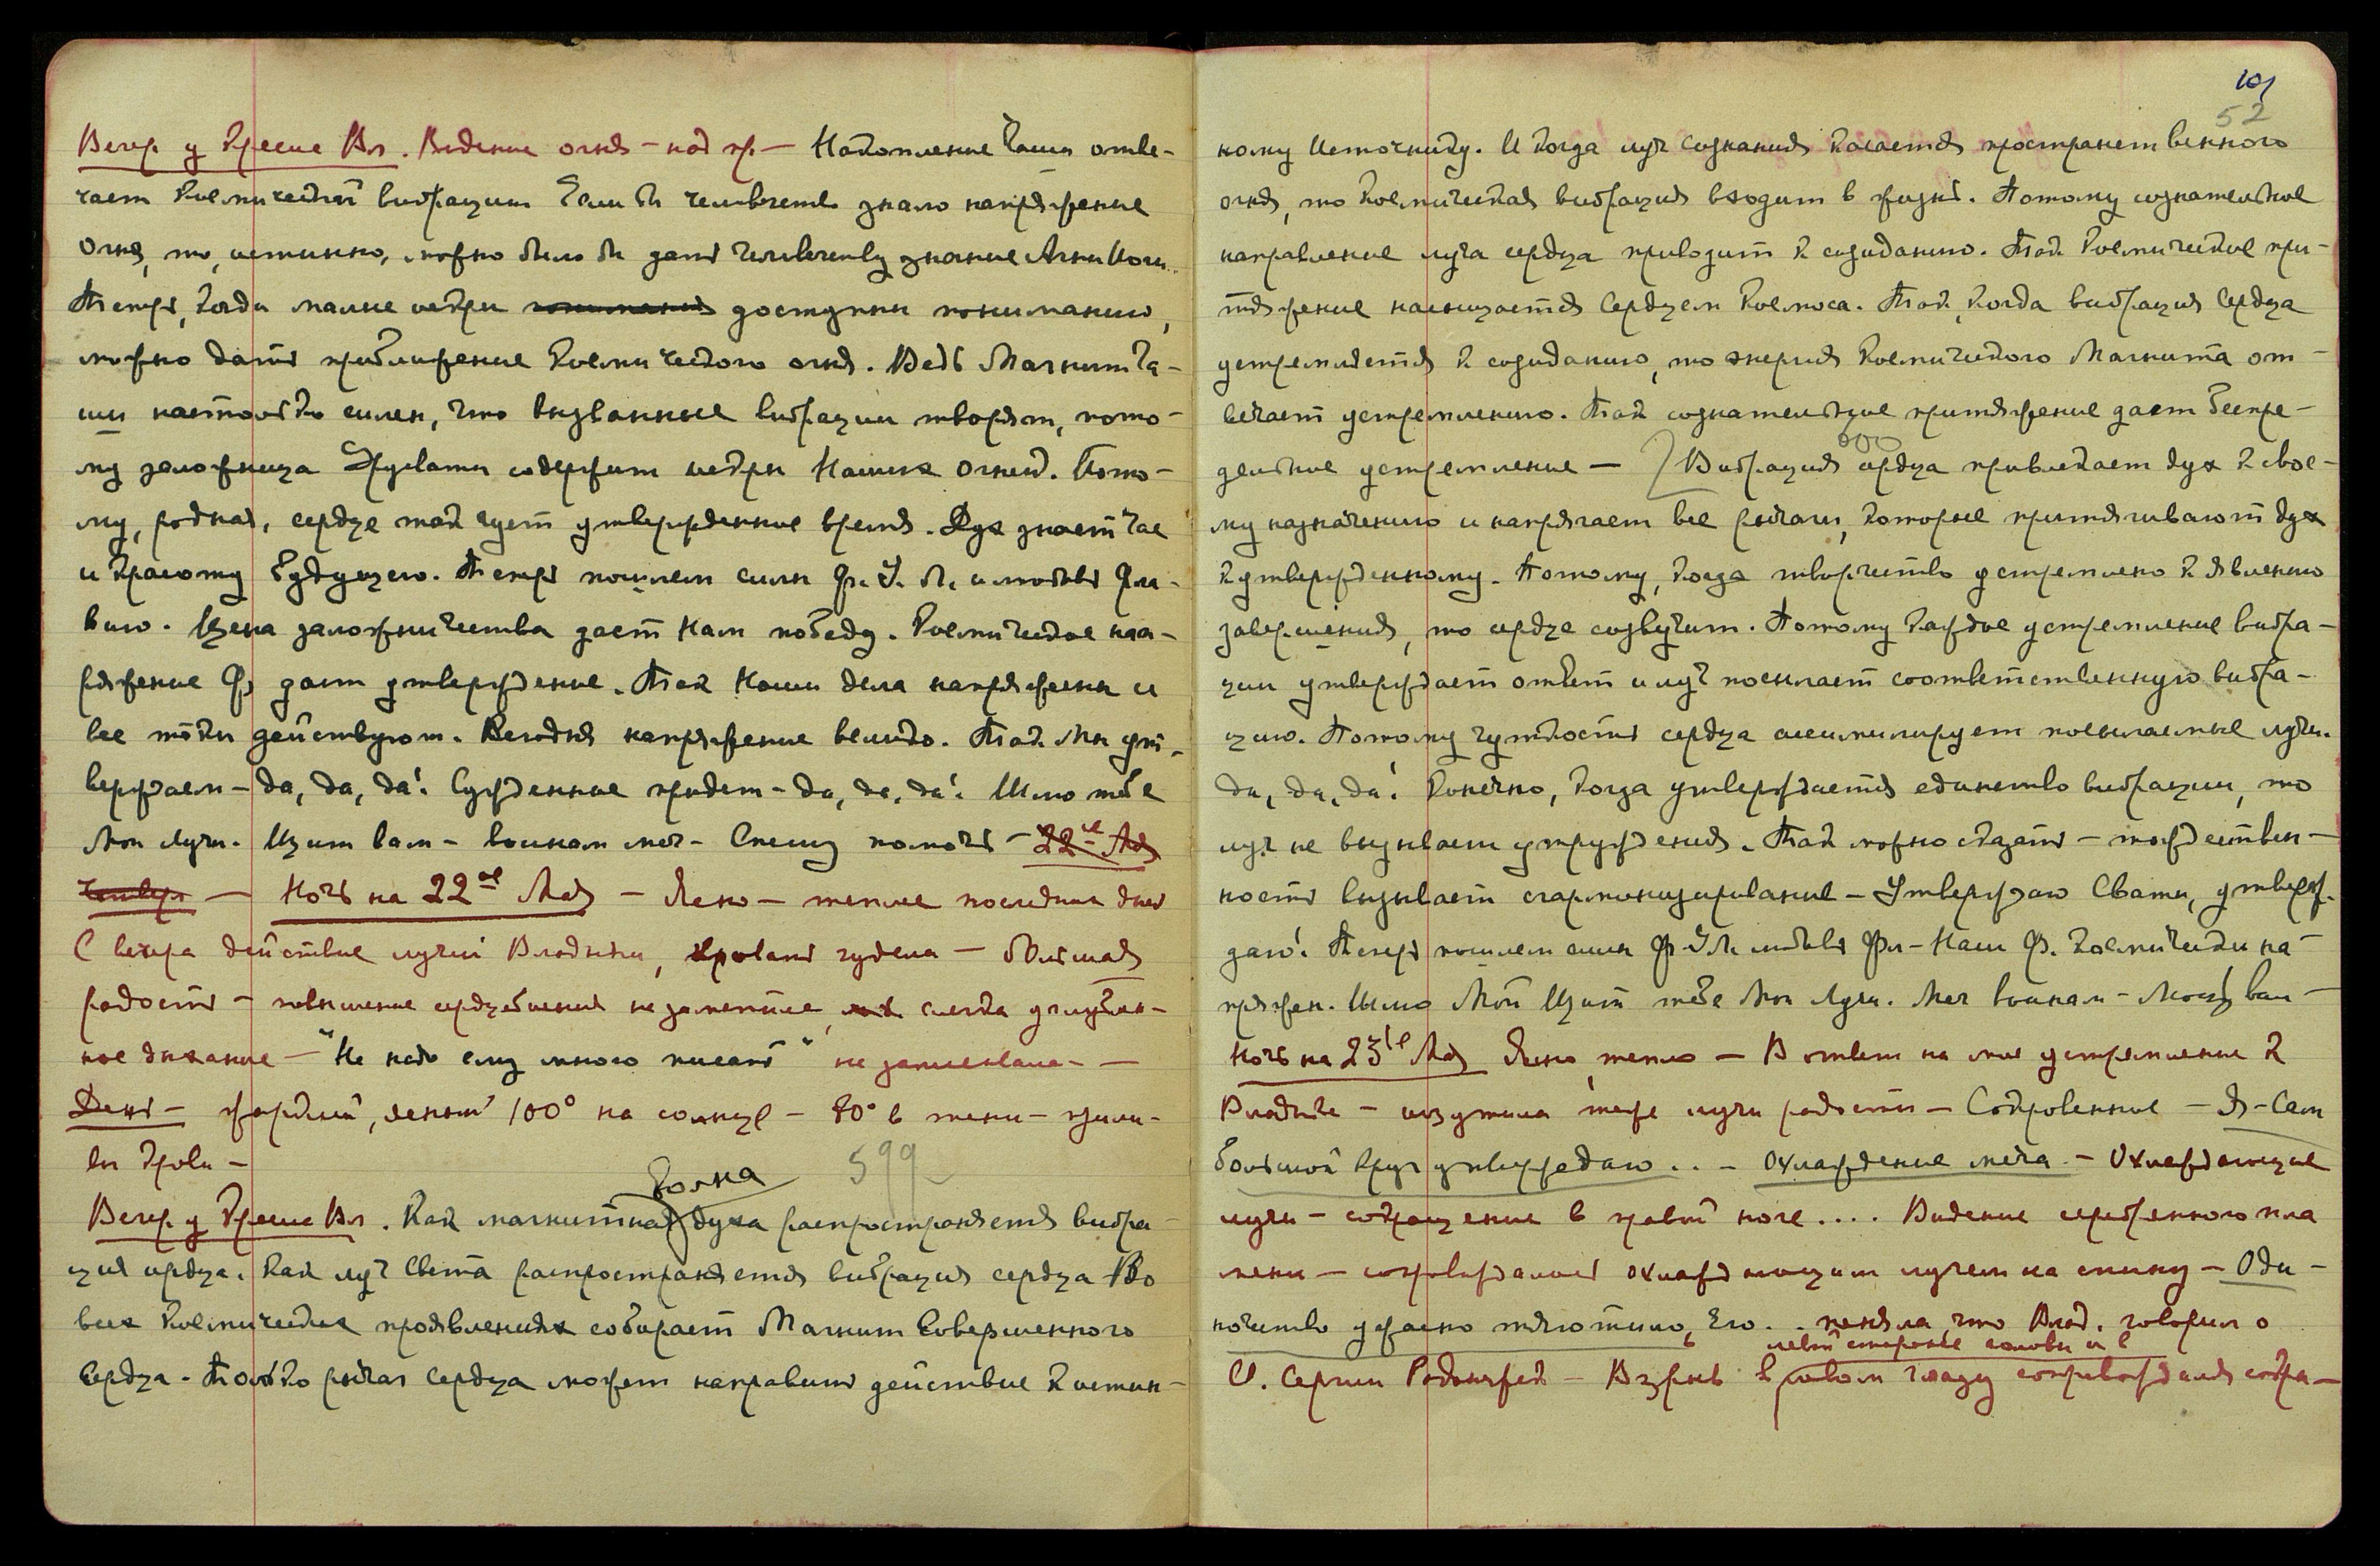 Вечер у Кресле Вл. Видение огня – над пр – Накопление Чаши отве-
чает космической вибрации. Если бы человечество знало напряжение
огня, то, истинно, можно было бы дать человечеству знание Агни Йоги.
Теперь, когда малые искры понимания доступны пониманию,
можно дать приближение космического огня. Ведь Магнит Ча-
ши настолько силен, что вызванные вибрации творят, пото-
му заложница Урусвати содержит искры Наших огней. Пото-
му, родная, сердце так чует утвержденное время. Дух знает час
и красоту Будущего. Теперь пошлем силы Ф. У. Л. и любовь Фл-
вию. Цена заложничества дает Нам победу. Космическое нап-
ряжение Ф. дает утверждение. Так Наши дела напряжены и
все токи действуют. Сегодня напряжение велико. Так Мы ут-
верждаем – да, да, да! Сужденное придет – да, да, да! Шлю тебе
Мои Лучи. Щит вам – воинам меч – Спешу помочь – 22-е Мая
Четверг – Ночь на 22ое Мая – Ясно – теплее последних дней
С вечера действие лучей Владыки, кровать гудела – большая
радость – повышение сердцебиения незаметное, слегка углублен-
ное дыхание – "Не надо ему много писать" не записывала –
День – жаркий, ясный 100° на солнце – 80° в тени – прили-
вы крови –
599
волна
Вечер у Кресле Вл. Как магнитная духа распространяется вибра-
ция сердца. Как луч Света распространяется вибрация сердца. Во
всех космических проявлениях собирает Магнит Совершенного
Сердца. Только рычаг Сердца может направить действие к истин-
101
52
ному Источнику. И когда луч сознания касается пространственного
огня, то космическая вибрация входит в жизнь. Потому сознательное
направление луча сердца приводит к созиданию. Так космическое при-
тяжение насыщается Сердцем Космоса. Так, когда вибрация Сердца
устремляется к созиданию, то энергия Космического Магнита от-
вечает устремлению. Так сознательное притяжение дает беспре-
600
дельное устремление – Вибрация сердца привлекает дух к свое-
му назначению и напрягает все рычаги, которые притягивают дух
к утвержденному. Потому, когда творчество устремлено к явлению
завершения, то сердце созвучит. Потому каждое устремление вибра-
ции утверждает ответ и луч посылает соответственную вибра-
цию. Потому чуткость сердца ассимилирует посылаемые лучи.
да, да, да! Конечно, когда утверждается единство вибрации, то
луч не вызывает утруждения. Так можно сказать – тождествен-
ность вызывает сгармонизирование – Утверждаю Сваты, утверж-
даю! Теперь пошлем силы Ф. У. Л. любовь Фл – Наш Ф. космически на-
пряжен. Шлю Мой Щит тебе Мои Лучи. Меч воинам – Мощь вам –
Ночь на 23ье Мая Ясно, тепло – В ответ на мое устремление к
Владыке – ощутила те же лучи радости – Сокровенное – Я – Сам
большой Круг утверждаю .. – Охлаждение меча – Охлаждающие
лучи – сокращение в правой ноге .... Видение серебряного пла-
мени – сопровождалось охлаждающим лучем на спину – Оди-
ночество ужасно тяготило Его.. поняла что Влад. говорил о
левой стороне головы и в
С. Сергии Радонежск – Взрыв в левом глазу сопровождался сокра-